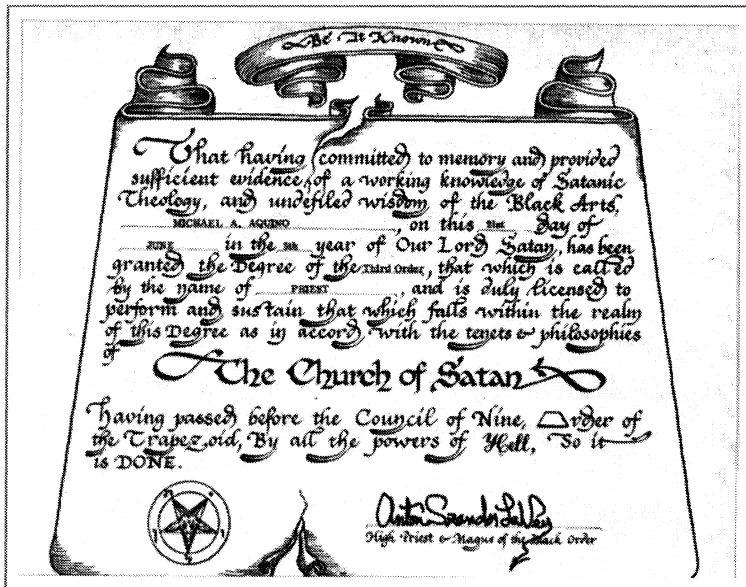 Be It Known
That having committed to memory and provided
sufficient evidence of a working knowledge of Satanic
Theology, and undefiled wisdom of the Black Arts,
MICHAEL A. AQUINO, on this 21st day of
JUNE in the 5th year of Our Lord Satan, has been
granted the Degree of the Third Order, that which is called
by the name of PRIEST, and is duly licensed to
perform and sustain that which falls within the realm
of this Degree as in accord with the tenets & philosophies
of
The Church of Satan
Having passed before the Council of Nine, Order of
the Trapezoid, By all the powers of Hell, So it
is DONE.
Anton Szandor LaVey
High Priest & Magus of the Black Order